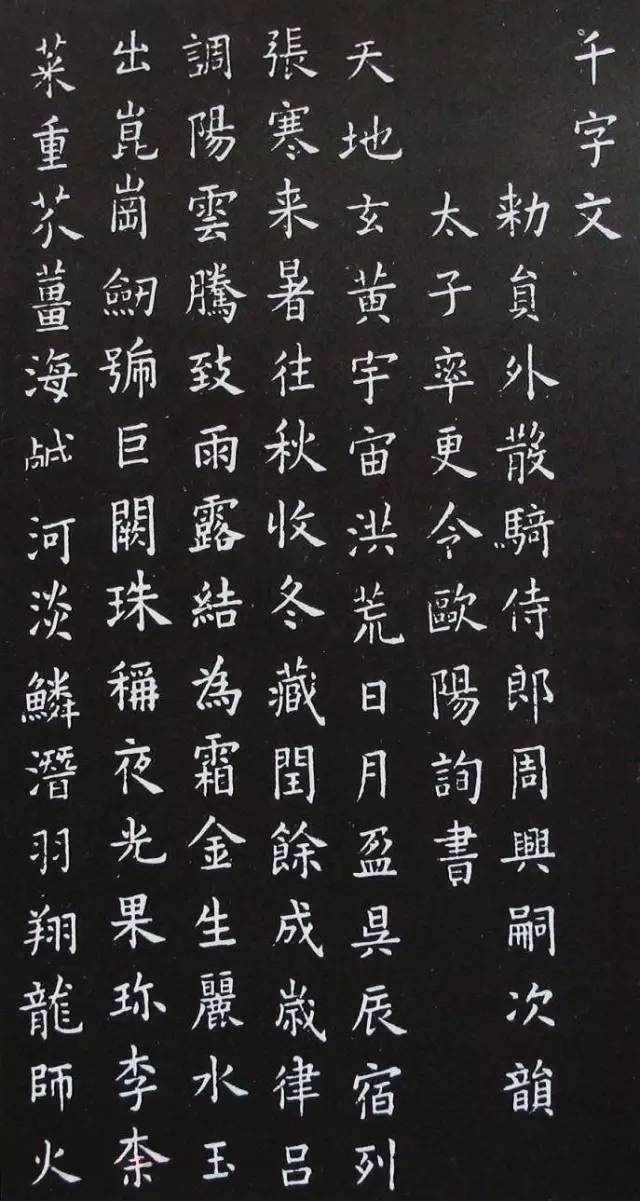 千字文
勑貟外散騎侍郎周興嗣次韻
太子率更令歐陽詢書
天地玄黃宇宙洪荒日月盈昃辰宿列
張寒来暑往秋收冬藏閏餘成歲律呂
調陽雲騰致雨露結為霜金生麗水玉
出崑崗劒號巨闕珠稱夜光果珎李柰
菜重芥薑海鹹河淡鱗潛羽翔龍師火